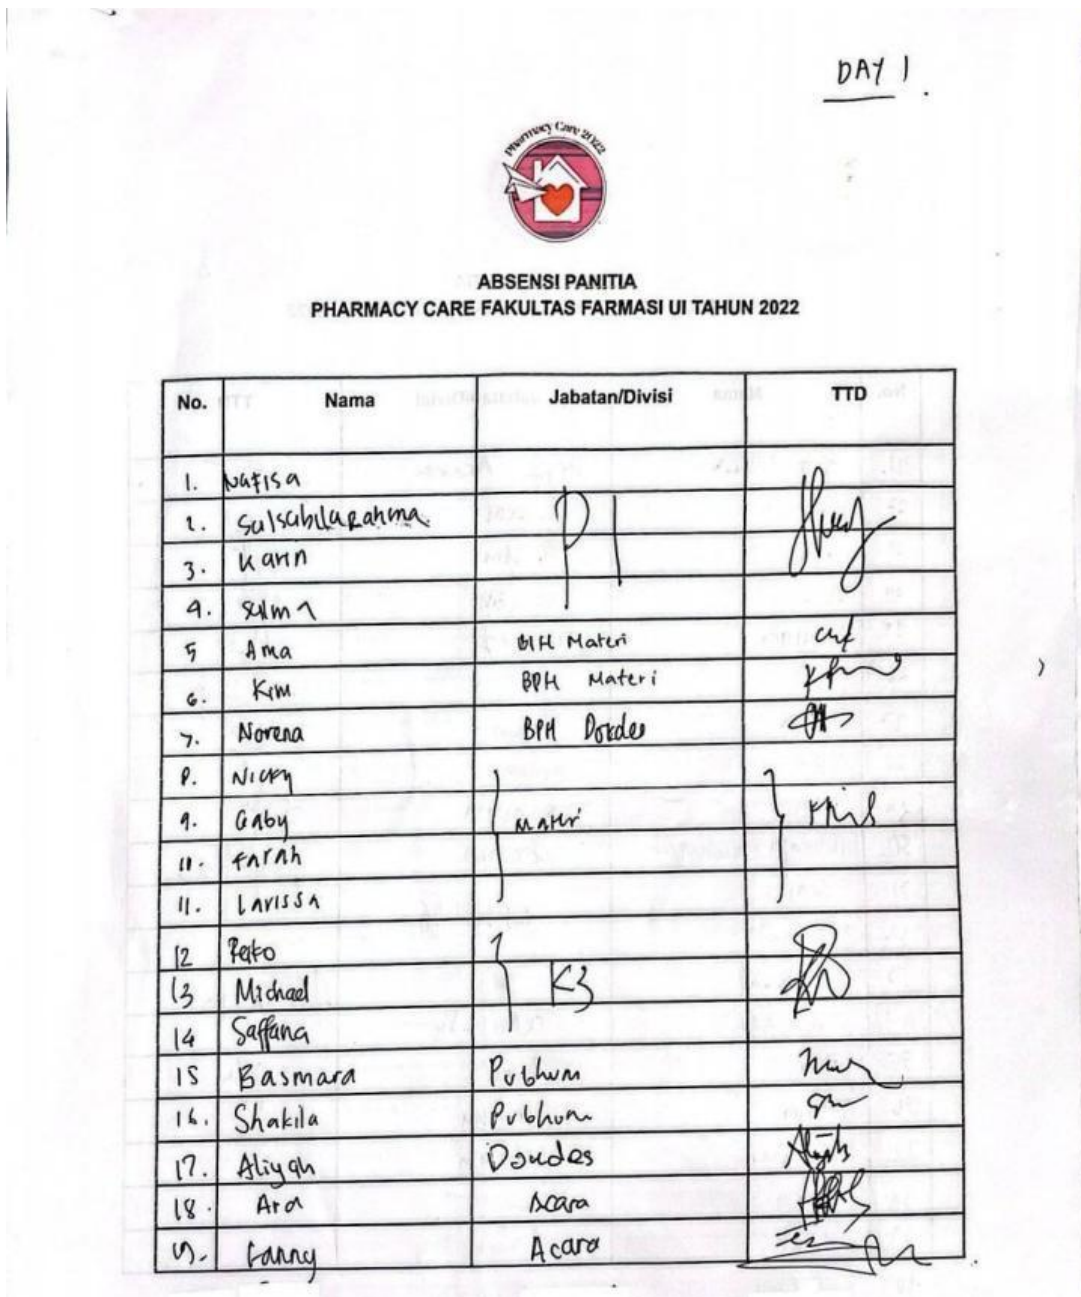 DAY 1.
Pharmacy Care 2022
ABSENSI PANITIA
PHARMACY CARE FAKULTAS FARMASI UI TAHUN 2022
No. Nama Jabatan/Divisi TTD
1. Nafisa
2. Salsabila Rahma PI
3. Karin
4. Salma
5 Ama BPH Materi
6. Kim BPH Materi
7. Norena BPH Dokdes
8. Nicky
9. Gaby Materi
10. Farah
11. Larissa
12
13 Michael K3
14 Saffana
15 Basmara Pubhum
16. Shakila Pubhum
17. Aliyah Dokdes
18. Ara Acara
19. Fanny Acara